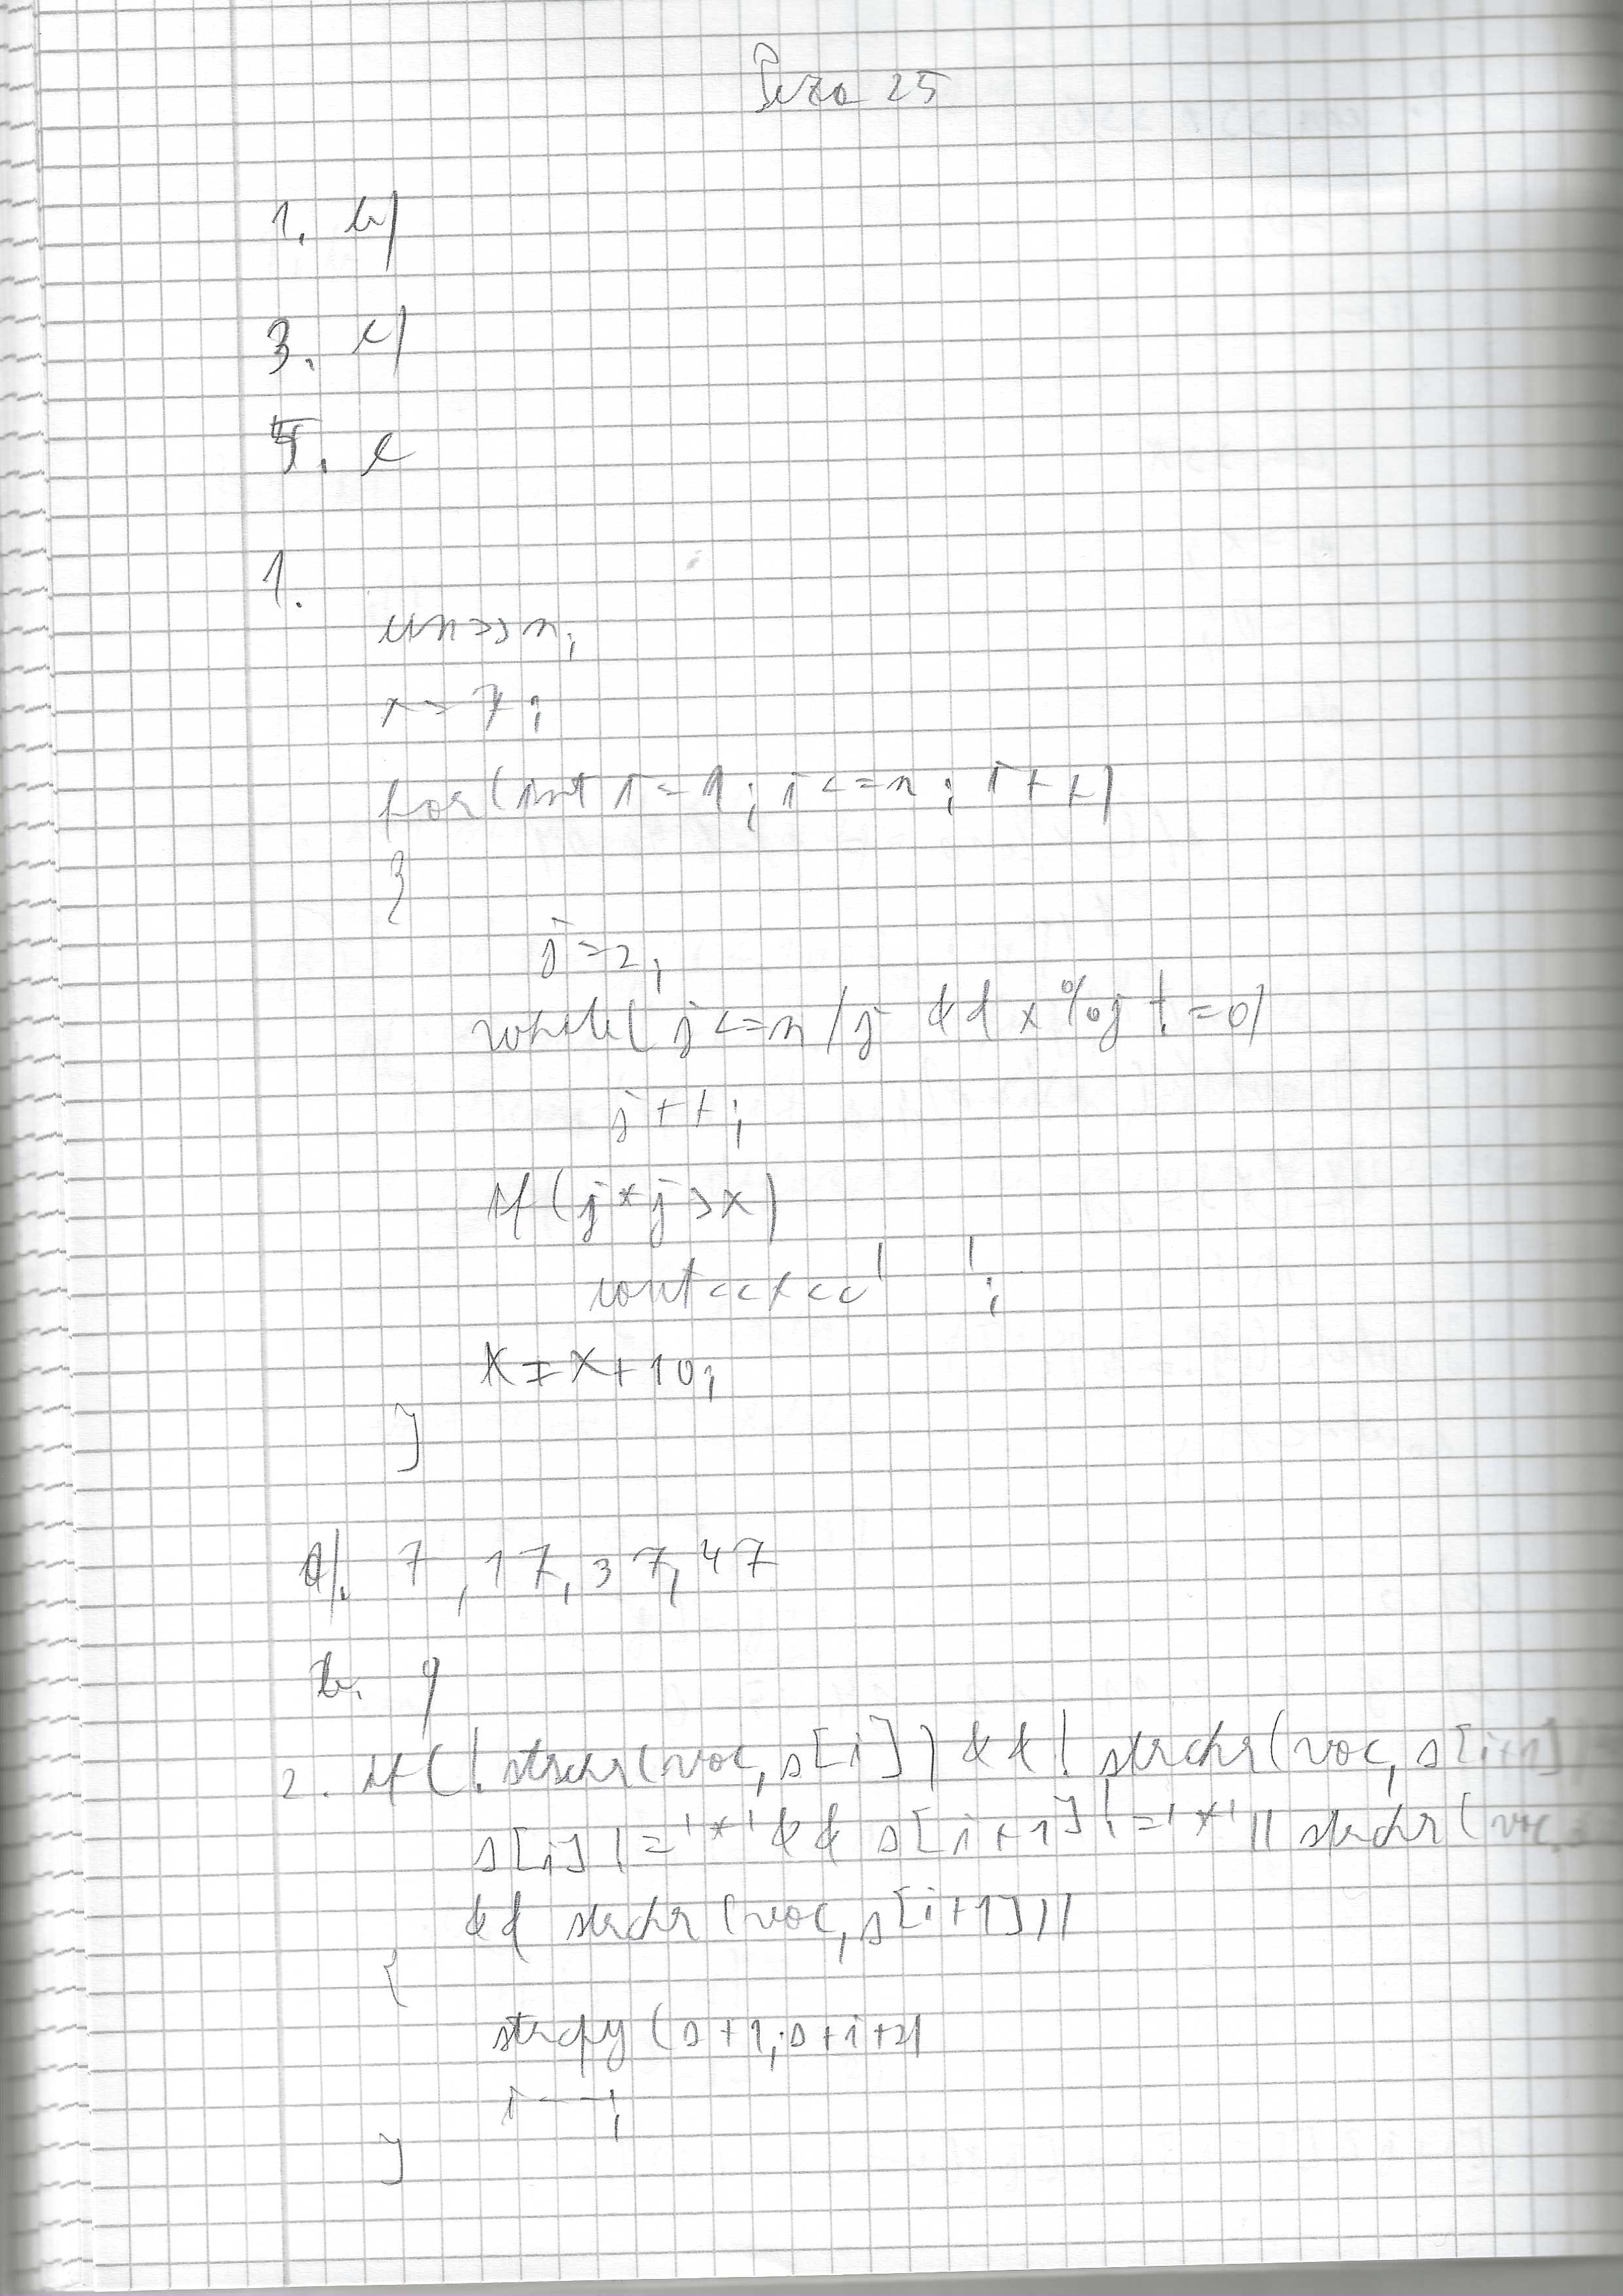 25
1. b)
3. c)
5. c
1.
cin>>n;
x=7;
for(int i=1; i<=n; i++)
{
j=2;
while(j<=n/j && x%j!=0)
j++;
if(j*j>x)
cout<<x<<' ';
x=x+10;
}
a). 7, 17, 37, 47
b. 9
2. if(!strchr(voc,s[i]) && !strchr(voc,s[i+1]
s[i]!='*' && s[i+1]!='*' || strchr(voc,s
&& strchr(voc,s[i+1]))
{
strcpy(s+1,s+i+2)
i--;
}